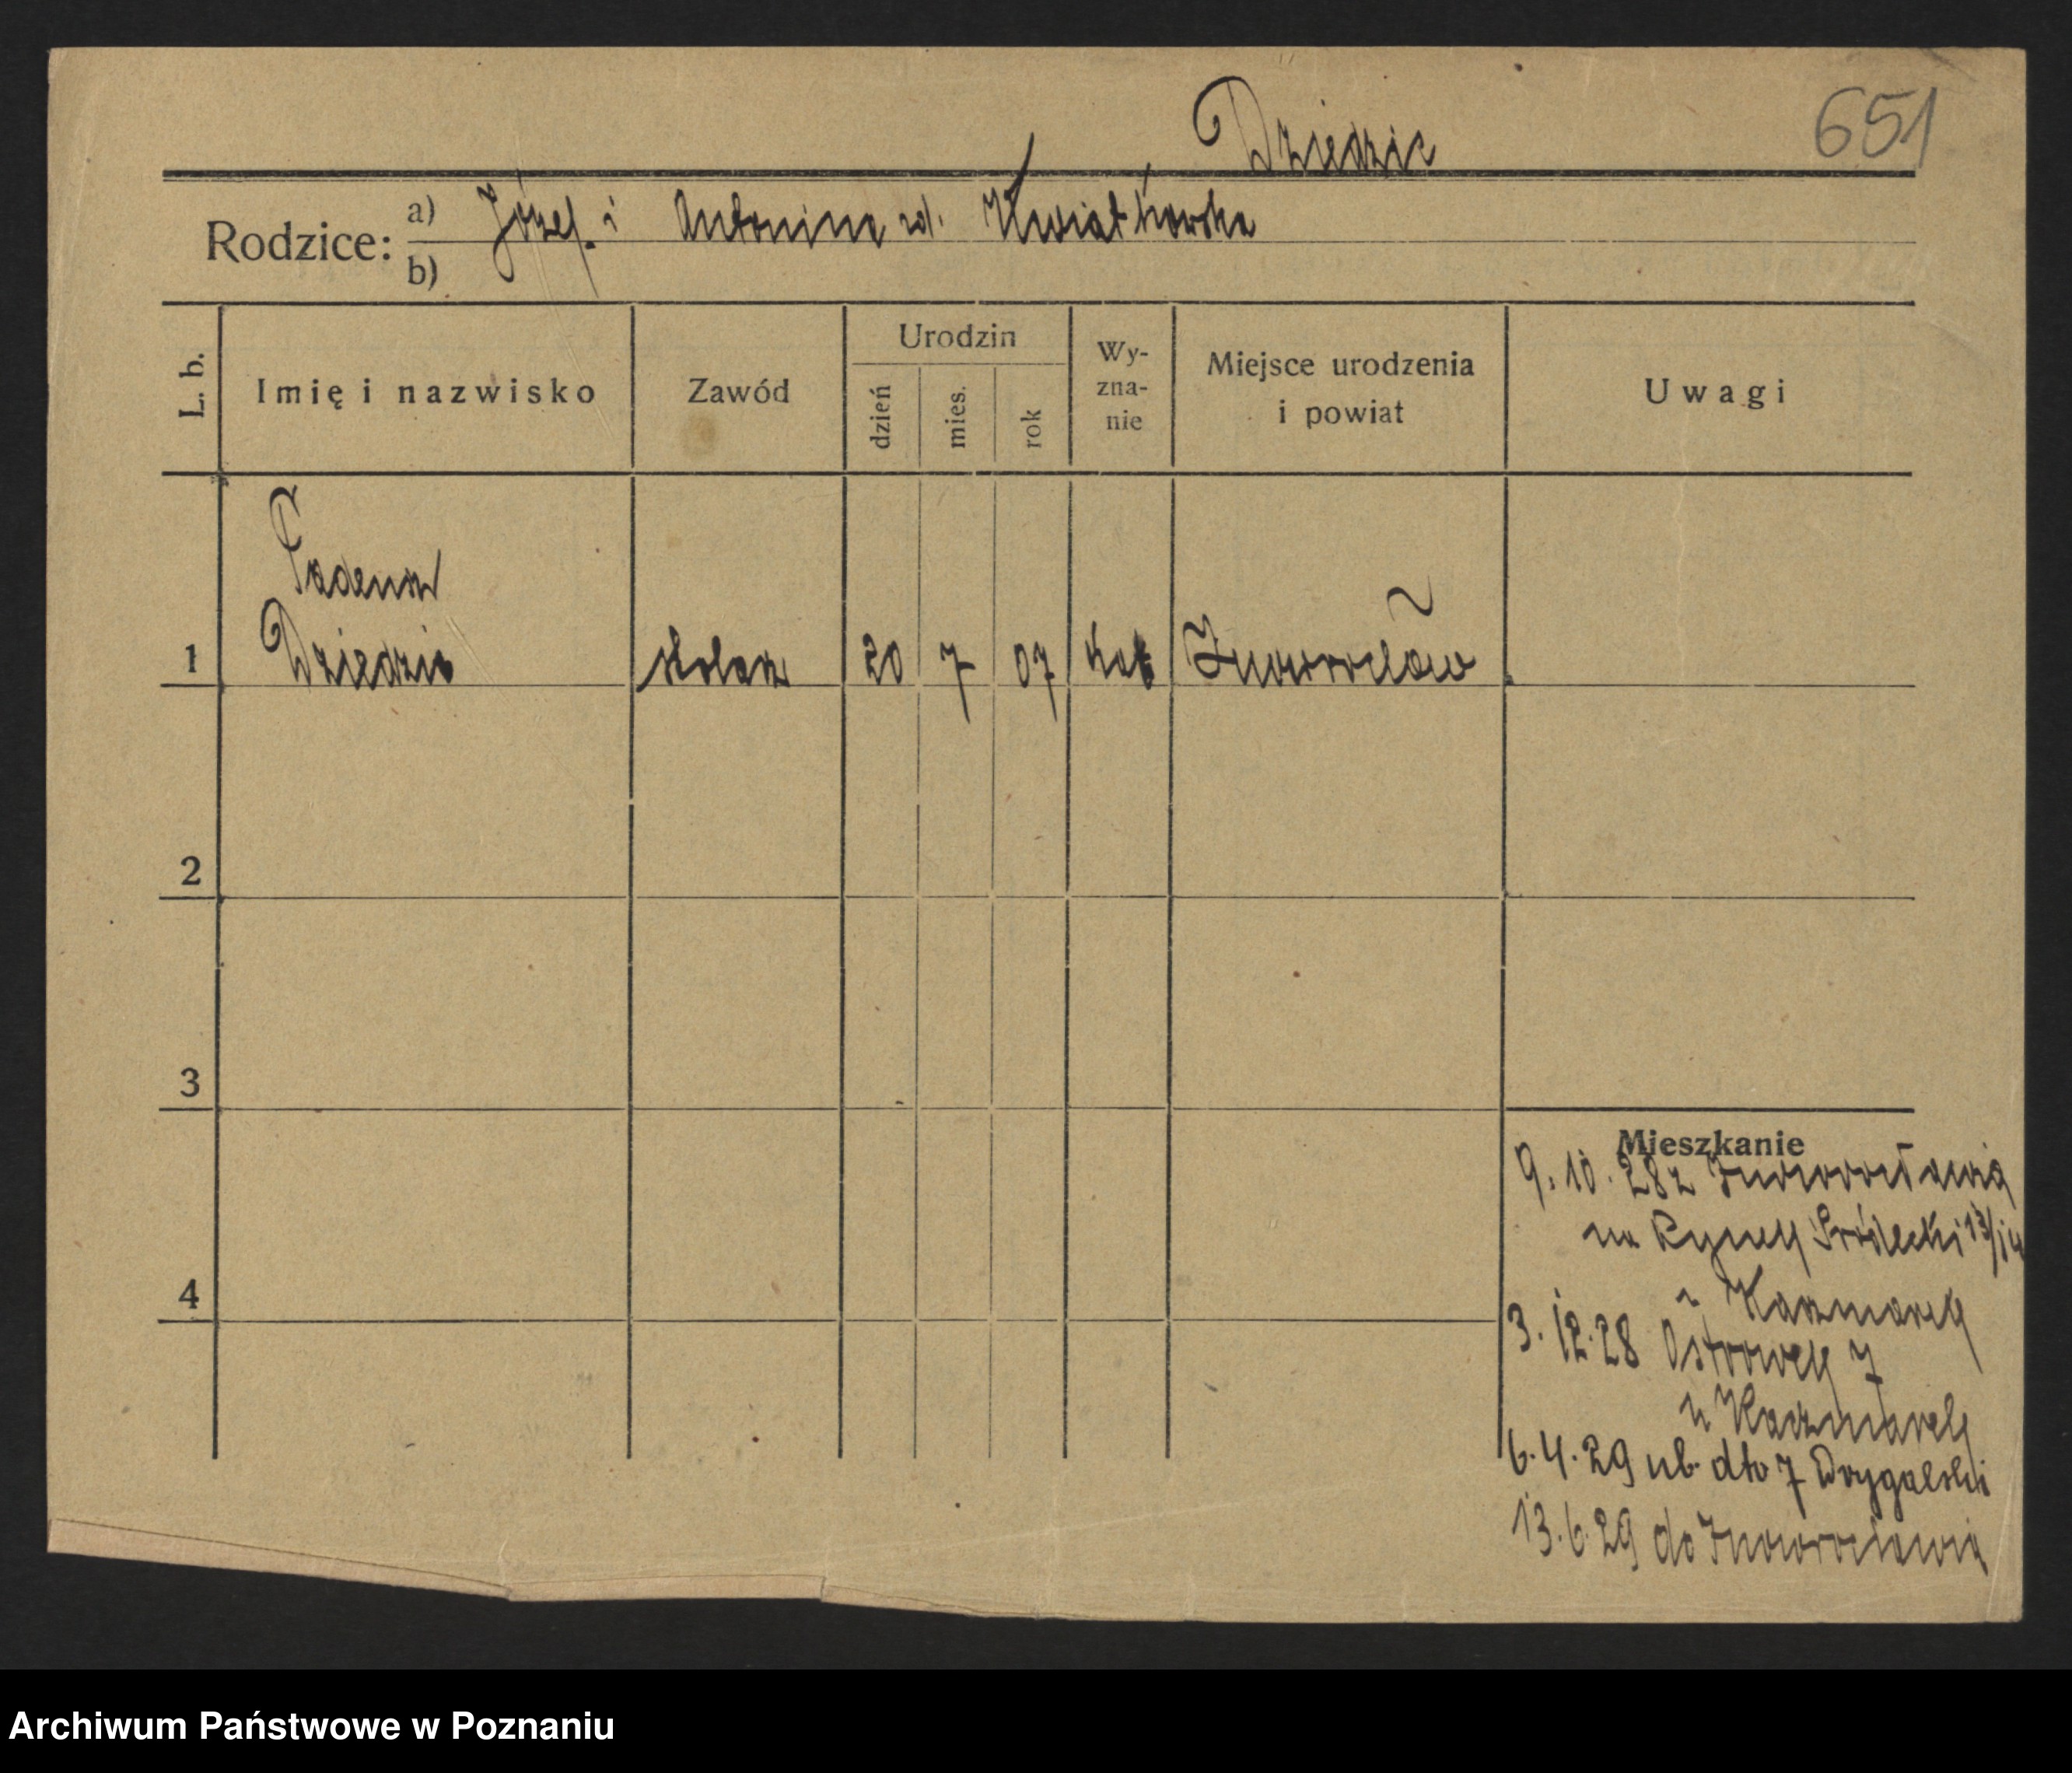 651
Dziedzic
Rodzice: a) Józef i Antonina zd. Kwiatkowska
b)
L. b. Imię i nazwisko Zawód Urodzin dzień mies. rok Wyznanie Miejsce urodzenia i powiat Uwagi
Tadeusz
1 Dziedzic stolarz 20 7 07 kat Inowrocław
2
3
4
Mieszkanie
9. 10. 28 z Inowrocławia
na Rynek Śródecki 13/14
u Kaczmarek
3. 12. 28 Ostrówek 7
u Kaczmarek
6. 4. 29 ub. dto 7 Drygalski
13. 6. 29 do Inowrocławia
Archiwum Państwowe w Poznaniu